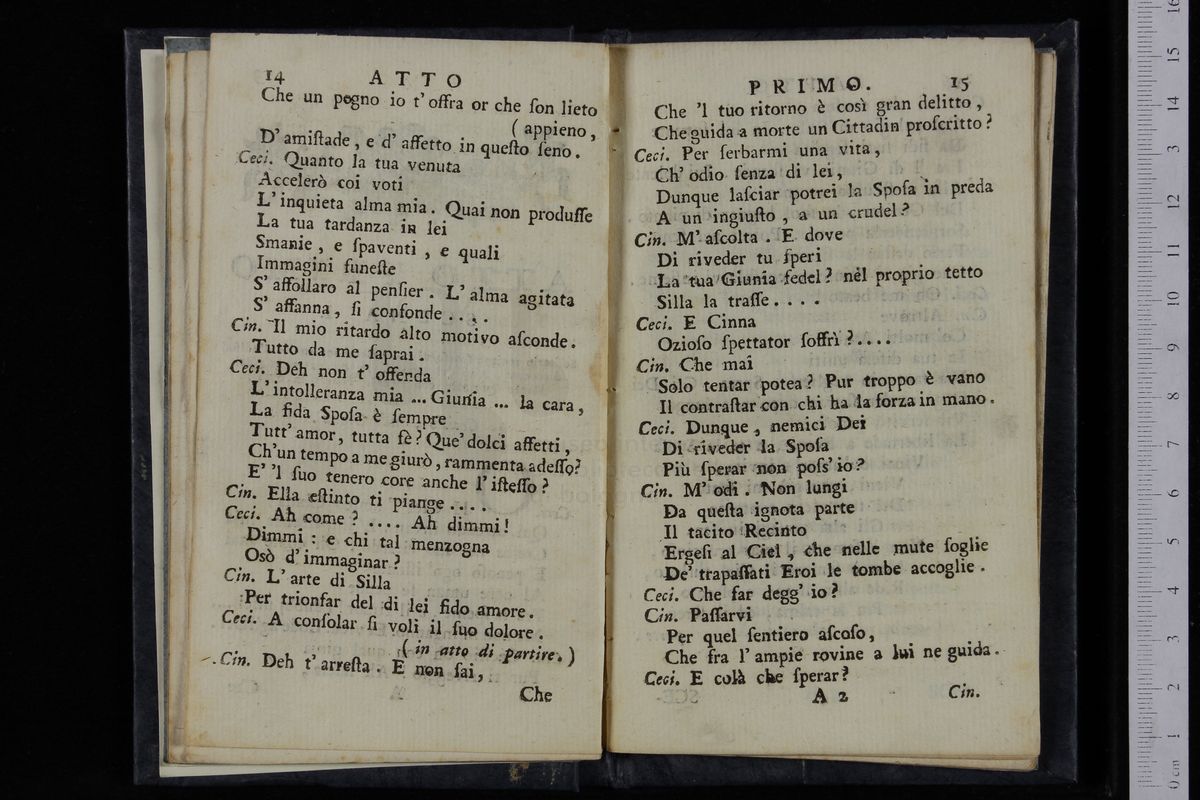 14 ATTO
Che un pegno io t'offra or che ſon lieto
(appieno,
D'amiſtade, e d'affetto in queſto ſeno.
Ceci. Quanto la tua venuta
Accelerò coi voti
L'inquieta alma mia. Quai non produſſe
La tua tardanza in lei
Smanie, e ſpaventi, e quali
Immagini funeſte
S'affollaro al penſier. L'alma agitata
S'affanna, ſi confonde....
Cin. Il mio ritardo alto motivo aſconde.
Tutto da me ſaprai.
Ceci. Deh non t'offenda
L'intolleranza mia ... Giunia ... la cara,
La fida Spoſa è ſempre
Tutt'amor, tutta fè? Que'dolci affetti,
Ch'un tempo a me giurò, rammenta adeſſo?
E' 'l ſuo tenero core anche l'iſteſſo?
Cin. Ella eſtinto ti piange....
Ceci. Ah come? .... Ah dimmi!
Dimmi: e chi tal menzogna
Osò d'immaginar?
Cin. L'arte di Silla
Per trionfar del di lei fido amore.
Ceci. A conſolar ſi voli il ſuo dolore.
(in atto di partire.)
Cin. Deh t'arreſta. E non ſai,
Che
PRIMO. 15
Che 'l tuo ritorno è così gran delitto,
Che guida a morte un Cittadin proſcritto?
Ceci. Per ſerbarmi una vita,
Ch'odio ſenza di lei,
Dunque laſciar potrei la Spoſa in preda
A un ingiuſto, a un crudel?
Cin. M'aſcolta. E dove
Di riveder tu ſperi
La tua Giunia fedel? nel proprio tetto
Silla la traſſe....
Ceci. E Cinna
Ozioſo ſpettator ſoffrì?....
Cin. Che mai
Solo tentar potea? Pur troppo è vano
Il contraſtar con chi ha la forza in mano.
Ceci. Dunque, nemici Dei
Di riveder la Spoſa
Più ſperar non poſs'io?
Cin. M'odi. Non lungi
Da queſta ignota parte
Il tacito Recinto
Ergeſi al Ciel, che nelle mute ſoglie
De' trapaſſati Eroi le tombe accoglie.
Ceci. Che far degg'io?
Cin. Paſſarvi
Per quel ſentiero aſcoſo,
Che fra l'ampie rovine a lui ne guida.
Ceci. E colà che ſperar?
A 2 Cin.
0 cm 1 2 3 4 5 6 7 8 9 10 11 12 3 14 15 16